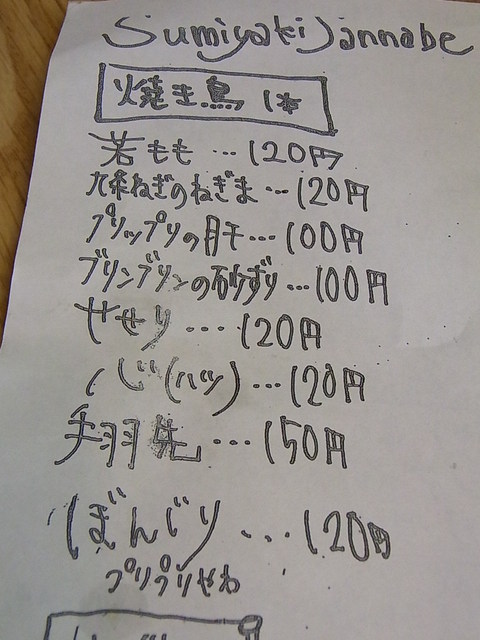 Sumiyaki Jannabe
焼き鳥 1本
若もも…120円
九条ねぎのねぎま…120円
プリップリの肝…100円
ブリンブリンの砂ずり…100円
せせり....120円
(ハツ)…120円
手羽先…150円
ぼんじり...120円
プリプリやわ